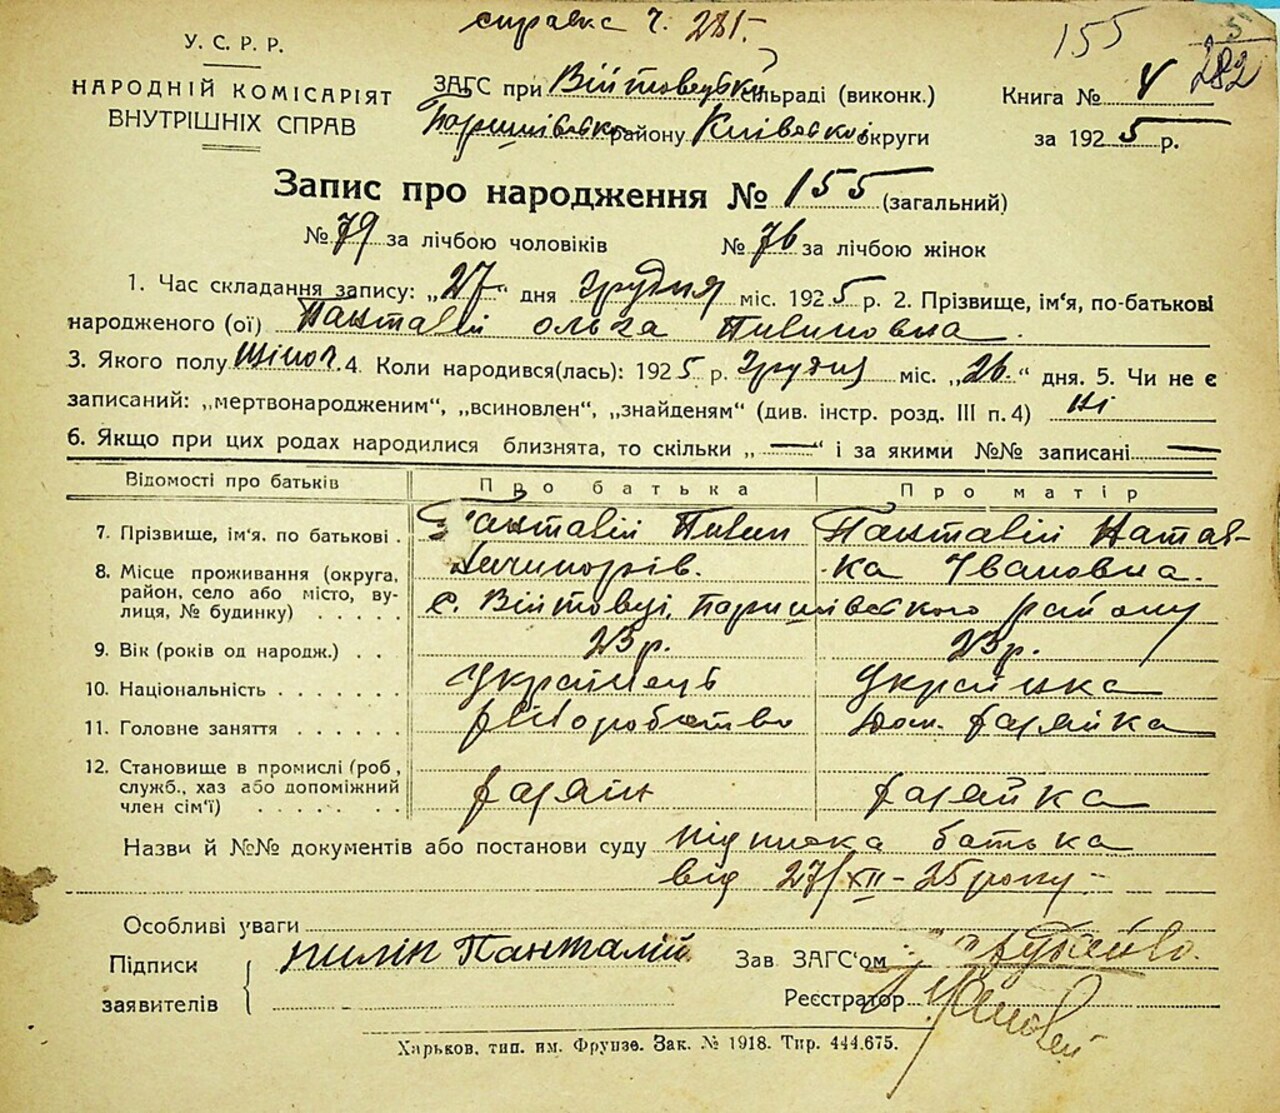 справка ч. 281.
155
5
282
У. С. Р. Р.
НАРОДНІЙ КОМІСАРІЯТ
ВНУТРІШНІХ СПРАВ
ЗАГС при Війтовецькій сільраді (виконк.)
Баришівсько району Київської округи
Книга № V
за 1925 р.
Запис про народження № 155 (загальний)
№ 79 за лічбою чоловіків № 76 за лічбою жінок
1. Час складання запису: „27" дня Грудня міс. 1925 р. 2. Прізвище, ім'я, по-батькові
народженого (ої) Панталій Ольга Пилиповна.
3. Якого полу Жіноч. 4. Коли народився(лась): 1925 р. Грудня міс. „26." дня. 5. Чи не є
записаний: „мертвонародженим", „всиновлен", „знайденям" (див. інстр. розд. III п. 4) ні
6. Якщо при цих родах народилися близнята, то скільки „—" і за якими №№ записані —
Відомості про батьків
Про батька
Про матір
7. Прізвище, ім'я. по батькові .
Панталій Пилип
Панталій Натал-
ка Івановна.
8. Місце проживання (округа, район, село або місто, вулиця, № будинку) . . . . .
с. Війтовці, Баришівського району
9. Вік (років од народж.) . .
23 р.
23 р.
10. Національність . . . . . . .
Українець
Українка
11. Головне заняття . . . . . .
хліборобство
Дом. хазяйка
12. Становище в промислі (роб, служб., хаз або допоміжний член сім'ї) . . . . . . .
хазяїн
хазяйка
Назви й №№ документів або постанови суду підписка батька
від 27/XII - 25 року.
Особливі уваги
Підписи
заявителів
пилип Панталій
Зав ЗАГС'ом
Реєстратор
Харьков, тип. им. Фрунзе. Зак. № 1918. Тир. 444.675.